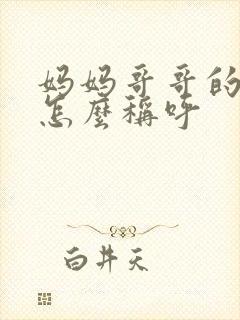 妈妈哥哥的
怎麼稱呼
白井天